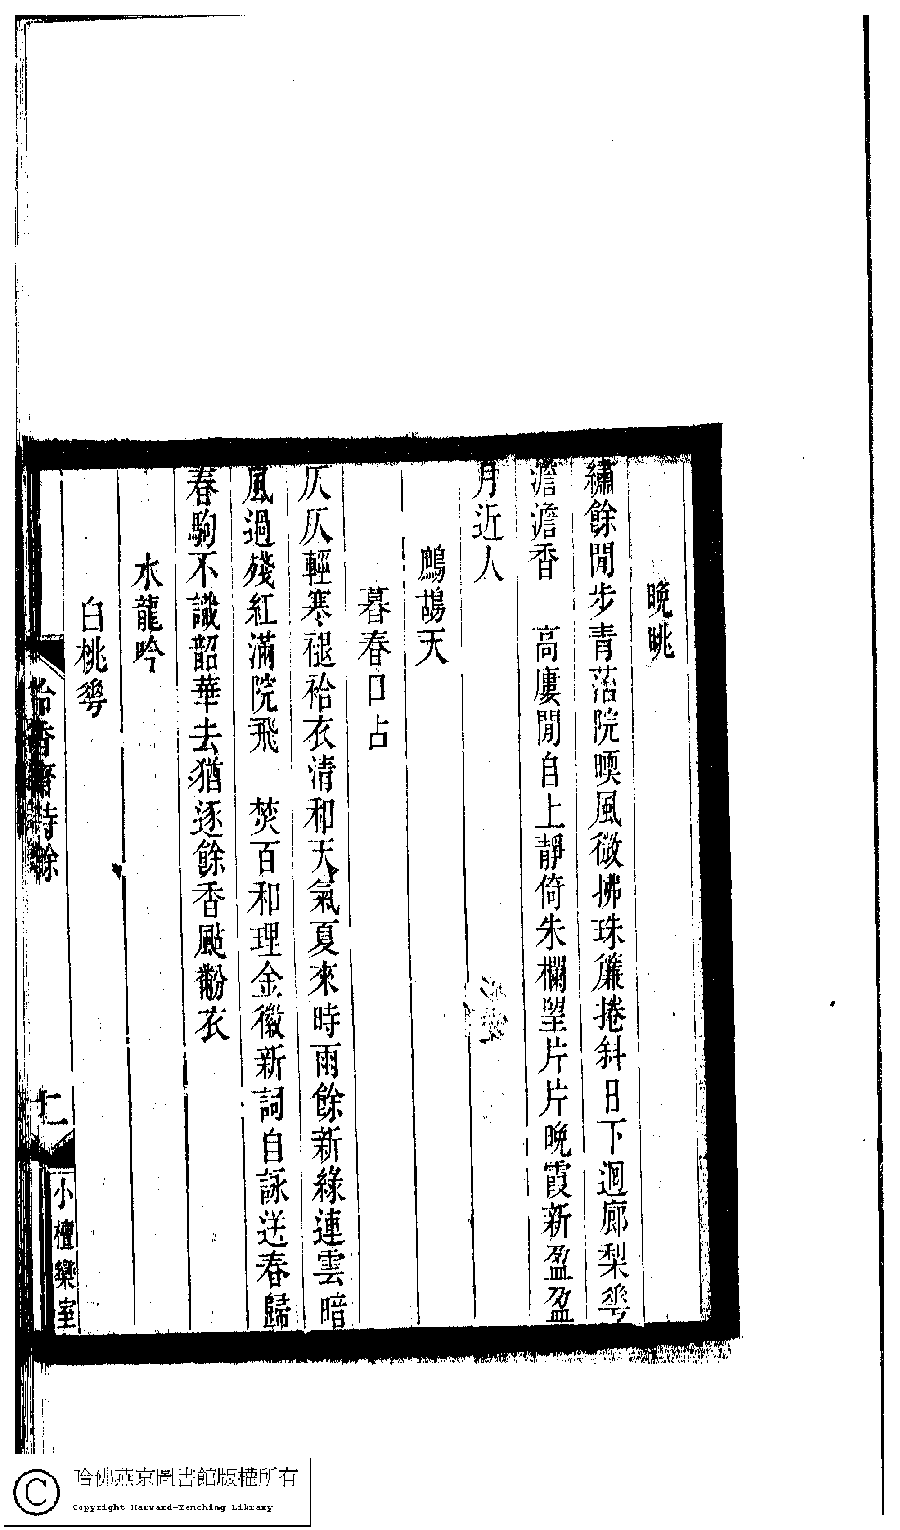 晚眺
繡餘閒步青苔院㬉風微拂珠簾捲斜日下迴廊梨㿥
澹澹香　高廔閒自上靜倚朱欄望片片晚霞新盈盈
月近人
鷓鴣天
暮春口占
仄仄輕寒褪袷衣清和天氣夏來時雨餘新綠連雲暗
風過殘紅滿院飛　焚百和理金徽新詞自詠送春歸
春駒不識韶華去猶逐餘香颭粉衣
水龍吟
白桃㿥
香齋詩餘
二
小檀欒室
哈佛燕京圖書館版權所有
Copyright Harvard-Yenching Library